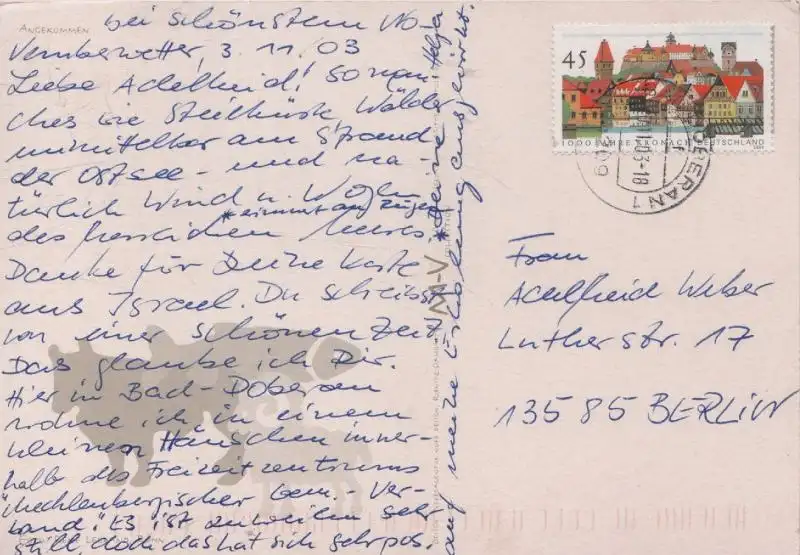 ANGEKOMMEN
bei schönstem No-
vemberwetter, 3.11.03
Liebe Adelheid! So man-
ches wie Steilküste, Wälder
unmittelbar am Strand
der Ostsee – und na-
türlich Wind u. Wogen
*erinnert an
des herrlichen Meeres.
Danke für Deine Karte
aus Israel. Du schreibst
von einer schönen Zeit
Das glaube ich Dir.
Hier in Bad-Doberan
wohne ich in einem
kleinen Häuschen inner-
halb des Freizeitzentrums
"Mechlenbergischer Gem.-Ver-
band". Es ist zuweilen sehr
still, doch das hat sich sehr pos.
auf meine Erholung ausgewirkt.
*Deine Helga
M-V
45
1000 JAHRE KRONACH DEUTSCHLAND
DOBERAN 1
11.03-18
Frau
Adelheid Weber
Lutherstr. 17
13585 BERLIN